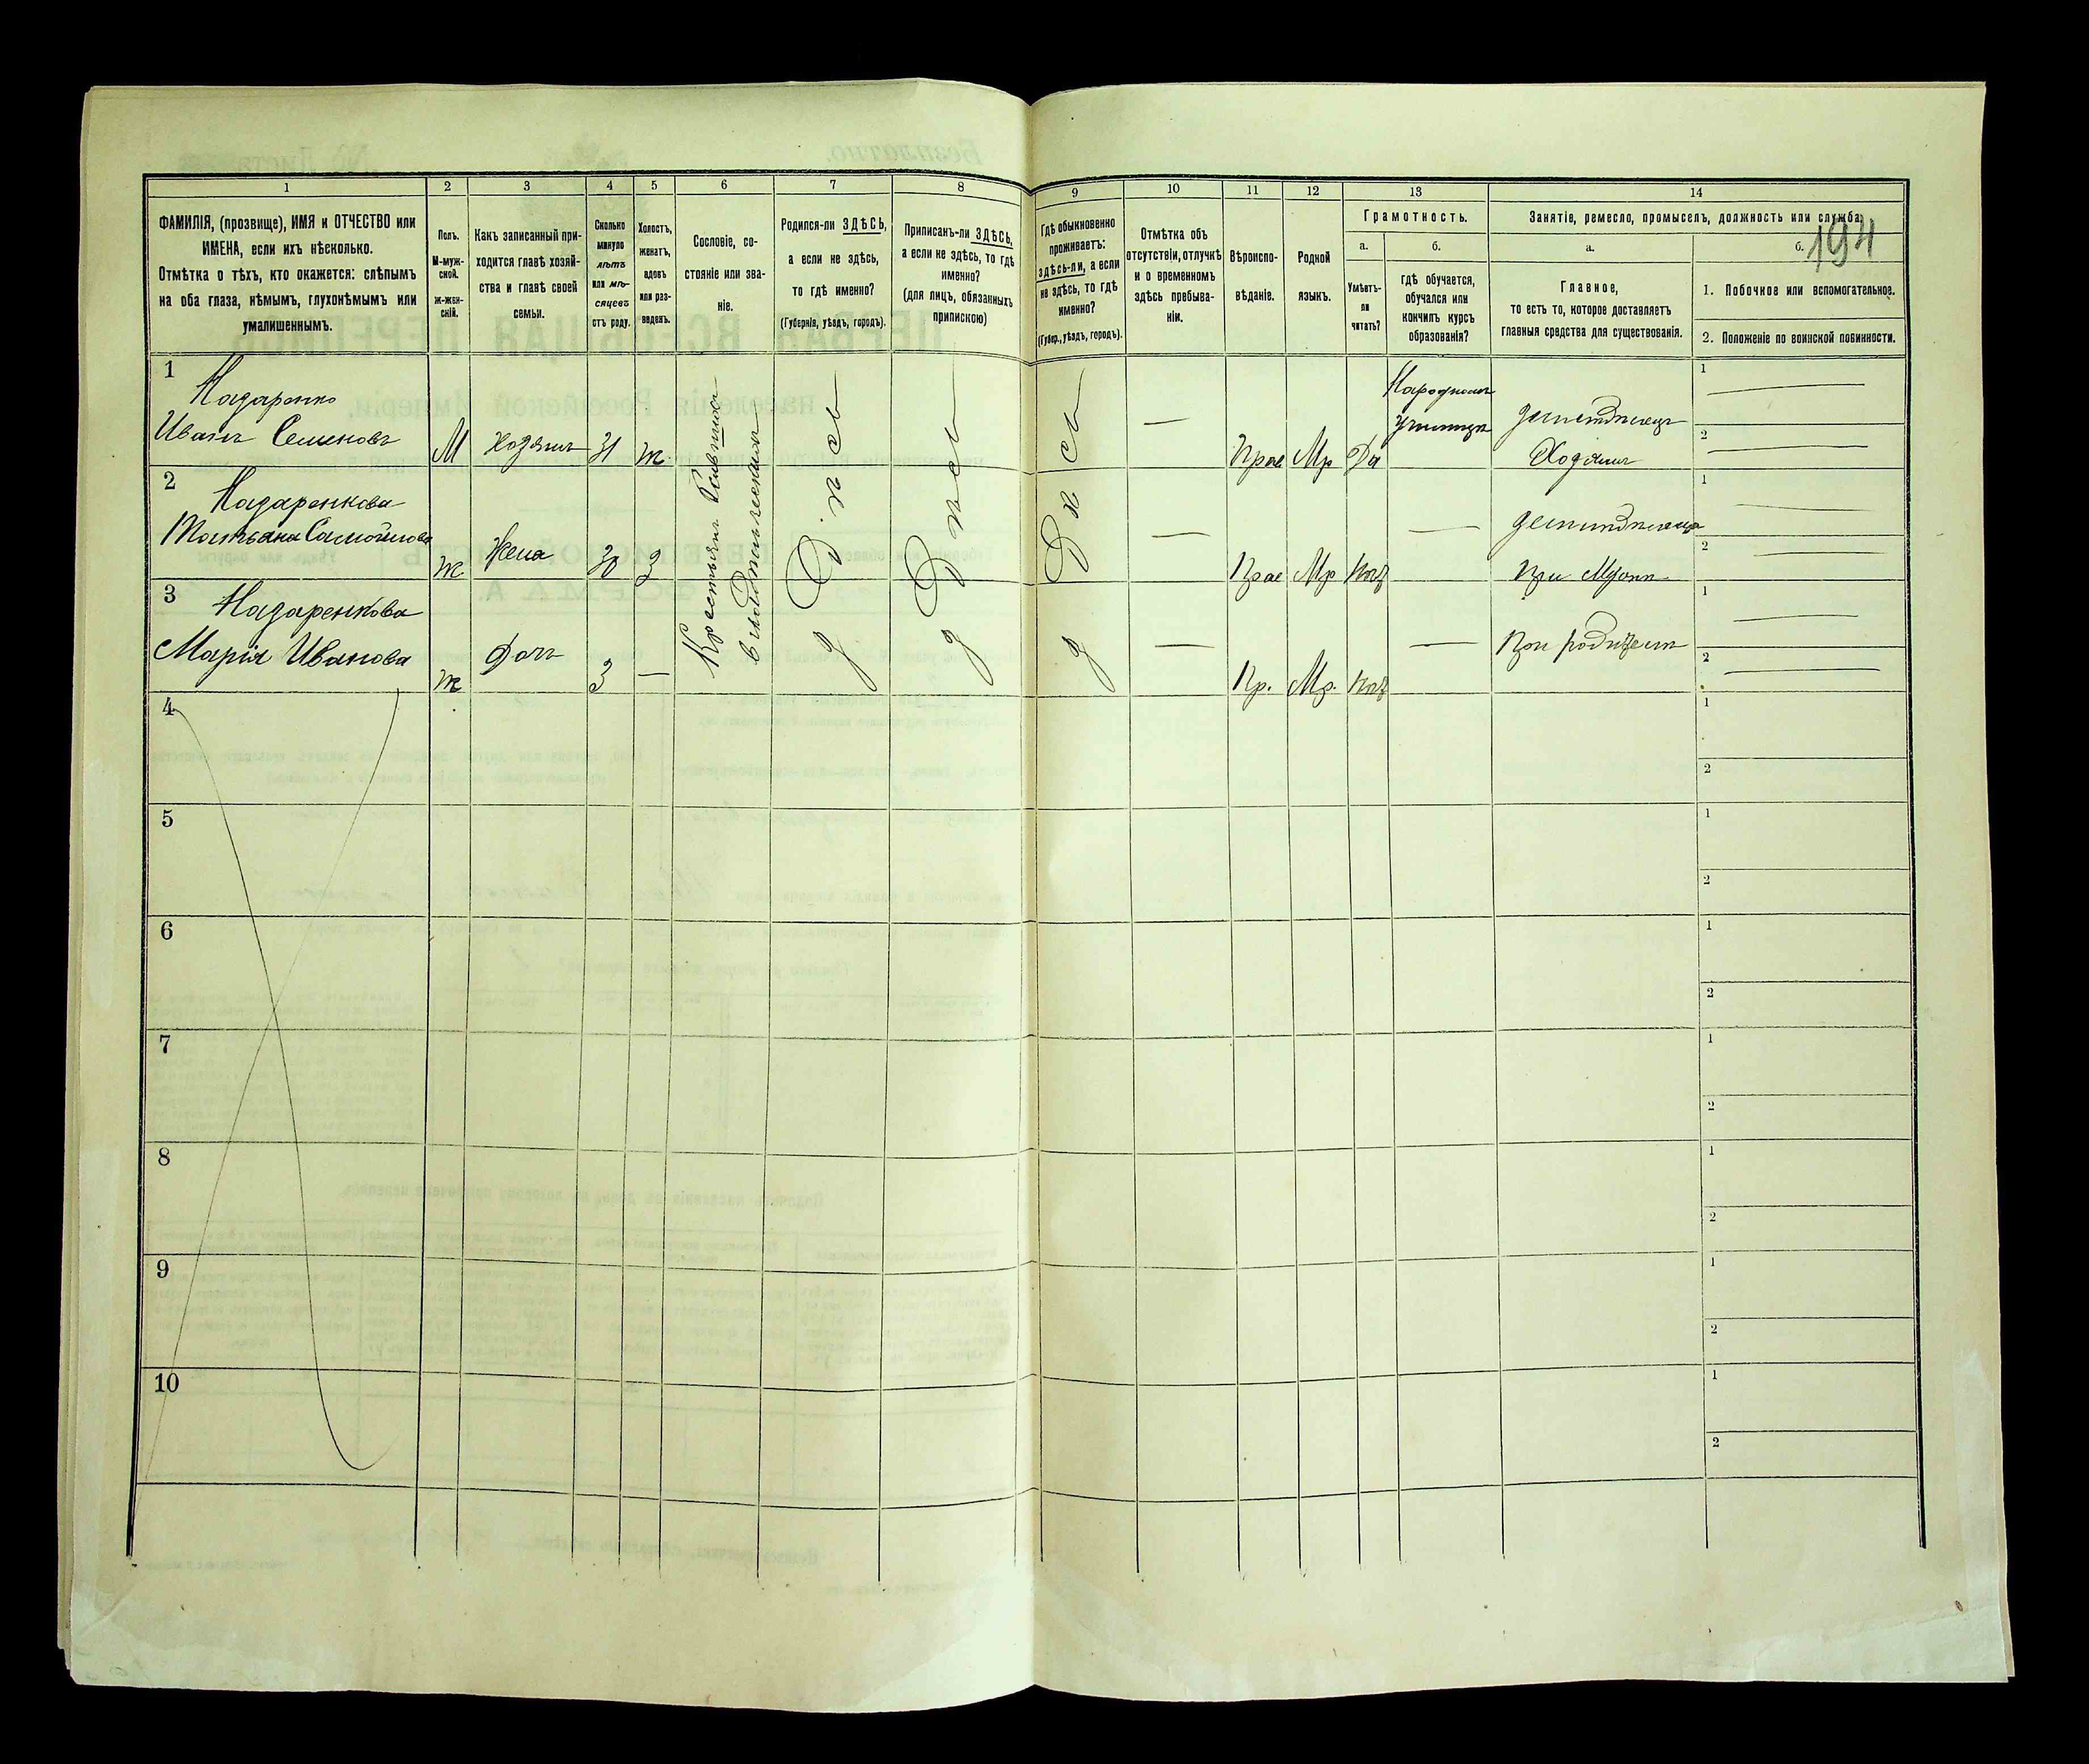 1 2 3 4 5 6 7 8 9 10 11 12 13 14
ФАМИЛІЯ, (прозвище), ИМЯ и ОТЧЕСТВО или
ИМЕНА, если ихъ нѣсколько.
Отмѣтка о тѣхъ, кто окажется: слѣпымъ
на оба глаза, нѣмымъ, глухонѣмымъ или
умалишеннымъ.
Полъ.
М-муж-
ской.
Ж-жен-
скій.
Какъ записанный при-
ходится главѣ хозяй-
ства и главѣ своей
семьи.
Сколько
минуло
лѣтъ
или мѣ-
сяцевъ
отъ роду.
Холостъ,
женатъ,
вдовъ
или раз-
веденъ.
Сословіе, со-
стояніе или зва-
ніе.
Родился-ли ЗДѢСЬ,
а если не здѣсь,
то гдѣ именно?
(Губернія, уѣздъ, городъ).
Приписанъ-ли ЗДѢСЬ,
а если не здѣсь, то гдѣ
именно?
(для лицъ, обязанныхъ
припискою)
Гдѣ обыкновенно
проживаетъ:
здѣсь-ли, а если
не здѣсь, то гдѣ
именно?
(Губер., уѣздъ, городъ).
Отмѣтка объ
отсутствіи, отлучкѣ
и о временномъ
здѣсь пребыва-
ніи.
Вѣроиспо-
вѣданіе.
Родной
языкъ.
Грамотность.
а.
Умѣетъ-
ли
читать?
б.
гдѣ обучается,
обучался или
кончилъ курсъ
образованія?
Занятіе, ремесло, промыселъ, должность или служба.
а.
Главное,
то есть то, которое доставляетъ
главныя средства для существованія.
б.
194
1. Побочное или вспомогательное.
2. Положеніе по воинской повинности.
1
Назаренко
Иванъ Семеновъ
М Хозяинъ 31 ж.
Крестьян
Здѣсь Здѣсь Здѣсь
—
Прав Мр Да
Народномъ
училищѣ
Хозяинъ
1 —
2 —
2
Назаренкова
Татьяна Самойлова
ж Жена 30 З
—
Прав Мр Нѣт
—
При Мужѣ
1 —
2 —
3
Назаренкова
Марія Иванова
ж Дочь 3 —
—
Пр. Мр. Нѣт
—
При родител
1 —
2 —
4
1
2
5
1
2
6
1
2
7
1
2
8
1
2
9
1
2
10
1
2